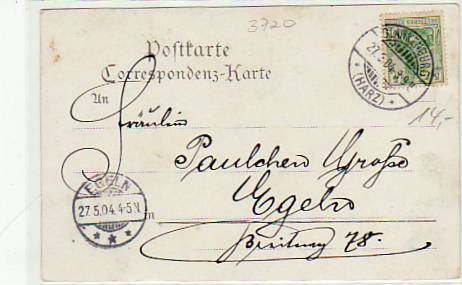 3720
Postkarte
Correspondenz-Karte
An
Fräulein
Paulchen Große
Egeln
Breiteweg 78.
in
BLANKENBURG
27.5.04.
* (HARZ) *
EGELN
27.5.04.4-5N
14,-